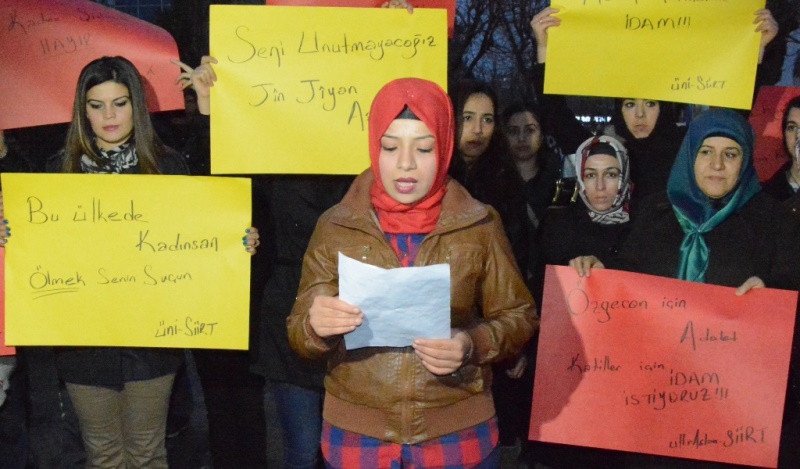 HAYIR
Seni Unutmayacağız
Jin Jiyan
İDAM!!!
ÜNİ-SİİRT
Bu ülkede
Kadınsan
Ölmek Senin Suçun
ÜNİ-SİİRT
Özgecan için
Adalet
Katiller için İDAM
İSTİYORUZ!!!
SİİRT